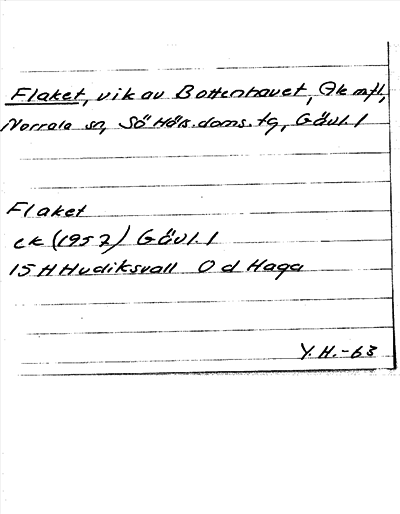 Flaket, vik av Bottenhavet, Gk mfl,
Norrala sn, Sö Häls.doms.tg, Gävl. l
Flaket
ek (1957) Gävl. l
15 H Hudiksvall O d Haga
Y. H. -63